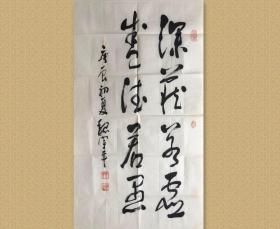 深藏若虚
盛德若愚
庚辰初夏